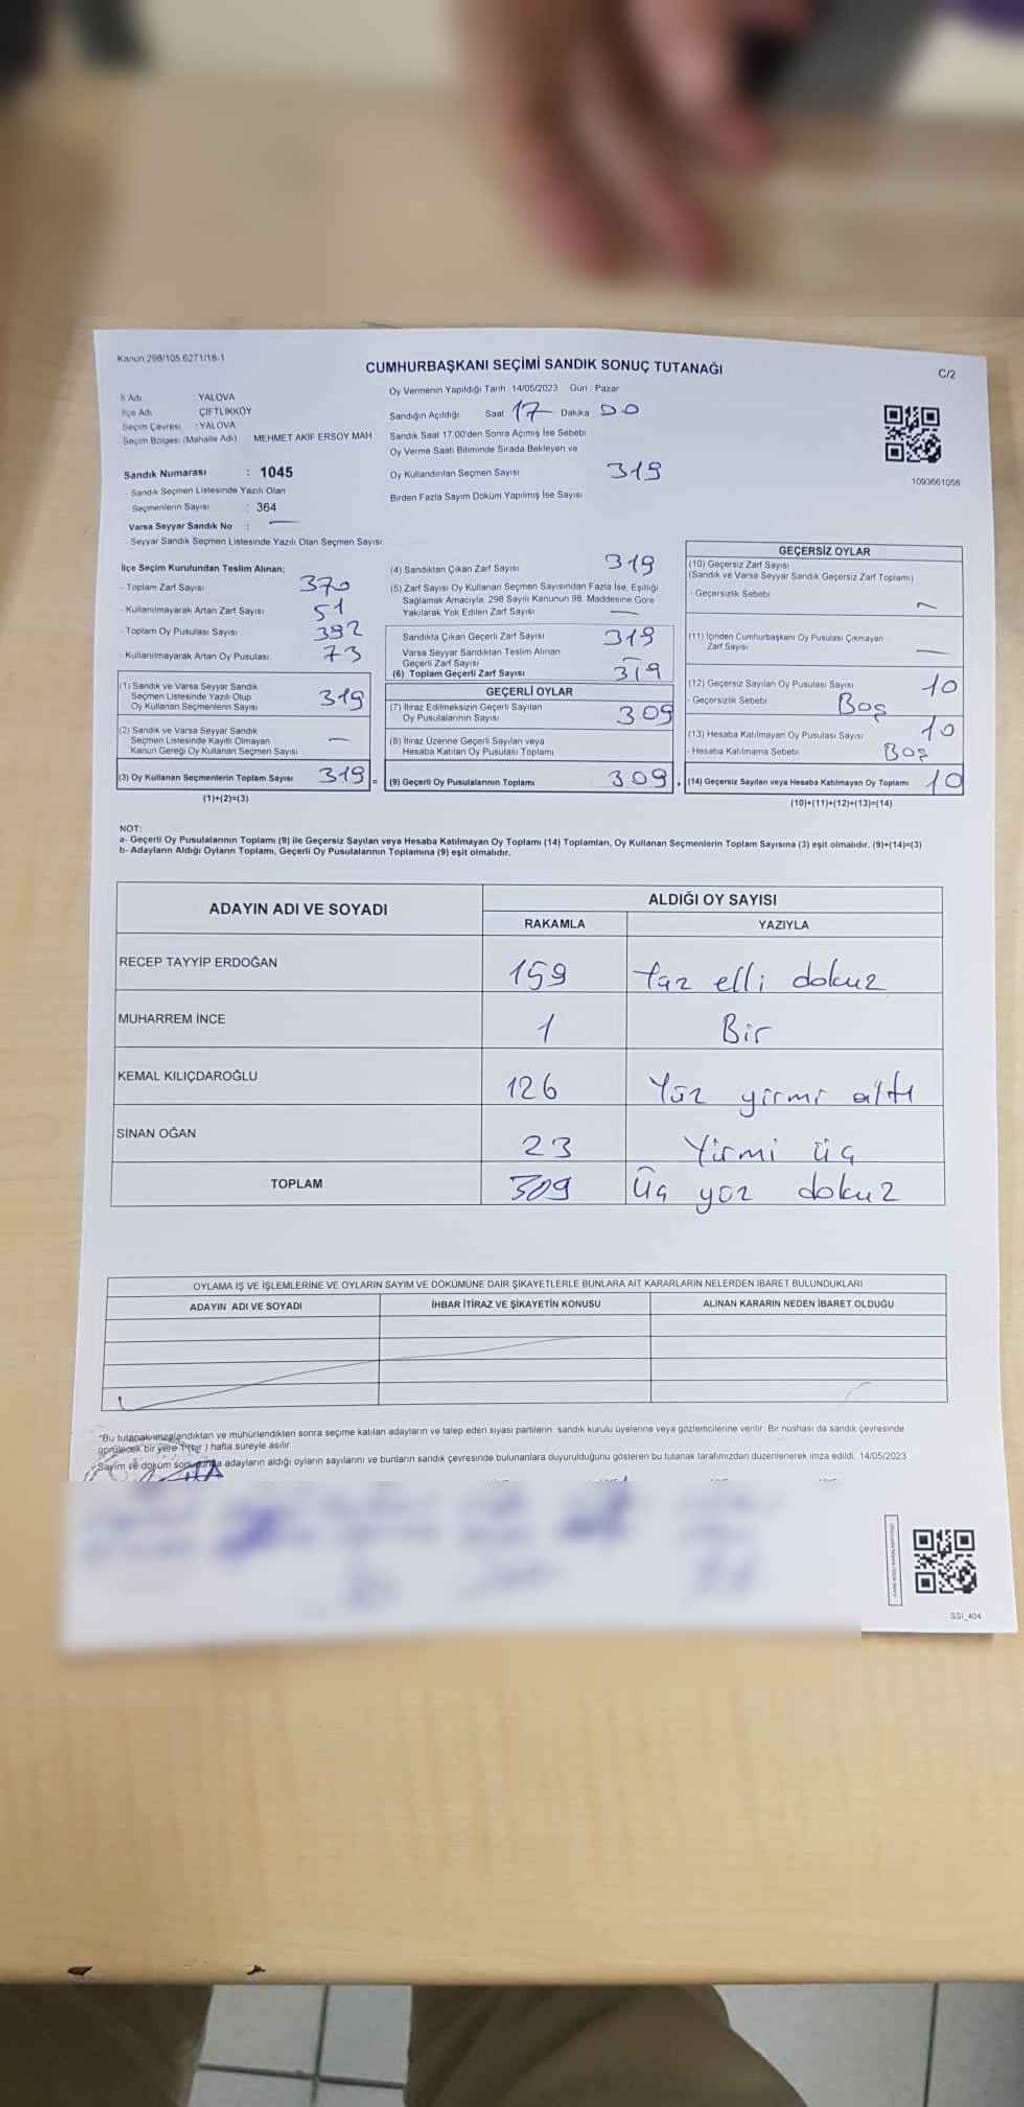 Kanun 298/105 6271/18-1
CUMHURBAŞKANI SEÇİMİ SANDIK SONUÇ TUTANAĞI
C/2
İl Adı YALOVA
İlçe Adı ÇİFTLİKKÖY
Seçim Çevresi : YALOVA
Seçim Bölgesi (Mahalle Adı) MEHMET AKİF ERSOY MAH
Sandık Numarası : 1045
- Sandık Seçmen Listesinde Yazılı Olan
Seçmenlerin Sayısı : 364
Varsa Seyyar Sandık No :
- Seyyar Sandık Seçmen Listesinde Yazılı Olan Seçmen Sayısı
Oy Vermenin Yapıldığı Tarih 14/05/2023 Gün : Pazar
Sandığın Açıldığı Saat 17 Dakika 00
Sandık Saat 17.00'den Sonra Açılmış İse Sebebi
Oy Verme Saati Bitiminde Sırada Bekleyen ve
Oy Kullandırılan Seçmen Sayısı 319
Birden Fazla Sayım Döküm Yapılmış İse Sayısı
1093661056
İlçe Seçim Kurulundan Teslim Alınan;
- Toplam Zarf Sayısı 370
- Kullanılmayarak Artan Zarf Sayısı 51
- Toplam Oy Pusulası Sayısı 392
- Kullanılmayarak Artan Oy Pusulası 73
(1) Sandık ve Varsa Seyyar Sandık
Seçmen Listesinde Yazılı Olup
Oy Kullanan Seçmenlerin Sayısı 319
(2) Sandık ve Varsa Seyyar Sandık
Seçmen Listesinde Kayıtlı Olmayan
Kanun Gereği Oy Kullanan Seçmen Sayısı —
(3) Oy Kullanan Seçmenlerin Toplam Sayısı 319 =
(1)+(2)=(3)
(4) Sandıktan Çıkan Zarf Sayısı 319
(5) Zarf Sayısı Oy Kullanan Seçmen Sayısından Fazla İse, Eşitliği
Sağlamak Amacıyla, 298 Sayılı Kanunun 98. Maddesine Göre
Yakılarak Yok Edilen Zarf Sayısı —
Sandıkta Çıkan Geçerli Zarf Sayısı 319
Varsa Seyyar Sandıktan Teslim Alınan
Geçerli Zarf Sayısı —
(6) Toplam Geçerli Zarf Sayısı 319
GEÇERLİ OYLAR
(7) İtiraz Edilmeksizin Geçerli Sayılan
Oy Pusulalarının Sayısı 309
(8) İtiraz Üzerine Geçerli Sayılan veya
Hesaba Katılan Oy Pusulası Toplamı
(9) Geçerli Oy Pusulalarının Toplamı 309 +
GEÇERSİZ OYLAR
(10) Geçersiz Zarf Sayısı
(Sandık ve Varsa Seyyar Sandık Geçersiz Zarf Toplamı)
- Geçersizlik Sebebi —
(11) İçinden Cumhurbaşkanı Oy Pusulası Çıkmayan
Zarf Sayısı —
(12) Geçersiz Sayılan Oy Pusulası Sayısı 10
- Geçersizlik Sebebi Boş
(13) Hesaba Katılmayan Oy Pusulası Sayısı 10
- Hesaba Katılmama Sebebi Boş
(14) Geçersiz Sayılan veya Hesaba Katılmayan Oy Toplamı 10
(10)+(11)+(12)+(13)=(14)
NOT:
a- Geçerli Oy Pusulalarının Toplamı (9) ile Geçersiz Sayılan veya Hesaba Katılmayan Oy Toplamı (14) Toplamları, Oy Kullanan Seçmenlerin Toplam Sayısına (3) eşit olmalıdır. (9)+(14)=(3)
b- Adayların Aldığı Oyların Toplamı, Geçerli Oy Pusulalarının Toplamına (9) eşit olmalıdır.
ADAYIN ADI VE SOYADI ALDIĞI OY SAYISI
RAKAMLA YAZIYLA
RECEP TAYYİP ERDOĞAN 159 Yüz elli dokuz
MUHARREM İNCE 1 Bir
KEMAL KILIÇDAROĞLU 126 Yüz yirmi altı
SİNAN OĞAN 23 Yirmi üç
TOPLAM 309 Üç yüz dokuz
OYLAMA İŞ VE İŞLEMLERİNE VE OYLARIN SAYIM VE DÖKÜMÜNE DAİR ŞİKAYETLERLE BUNLARA AİT KARARLARIN NELERDEN İBARET BULUNDUKLARI
ADAYIN ADI VE SOYADI İHBAR İTİRAZ VE ŞİKAYETİN KONUSU ALINAN KARARIN NEDEN İBARET OLDUĞU
*Bu tutanak imzalandıktan ve mühürlendikten sonra seçime katılan adayların ve talep eden siyasi partilerin sandık kurulu üyelerine veya gözlemcilerine verilir. Bir nüshası da sandık çevresinde
görülecek bir yere 1 (bir) hafta süreyle asılır.
Sayım ve döküm sonunda adayların aldığı oyların sayılarını ve bunların sandık çevresinde bulunanlara duyurulduğunu gösteren bu tutanak tarafımızdan düzenlenerek imza edildi. 14/05/2023
SSI_404